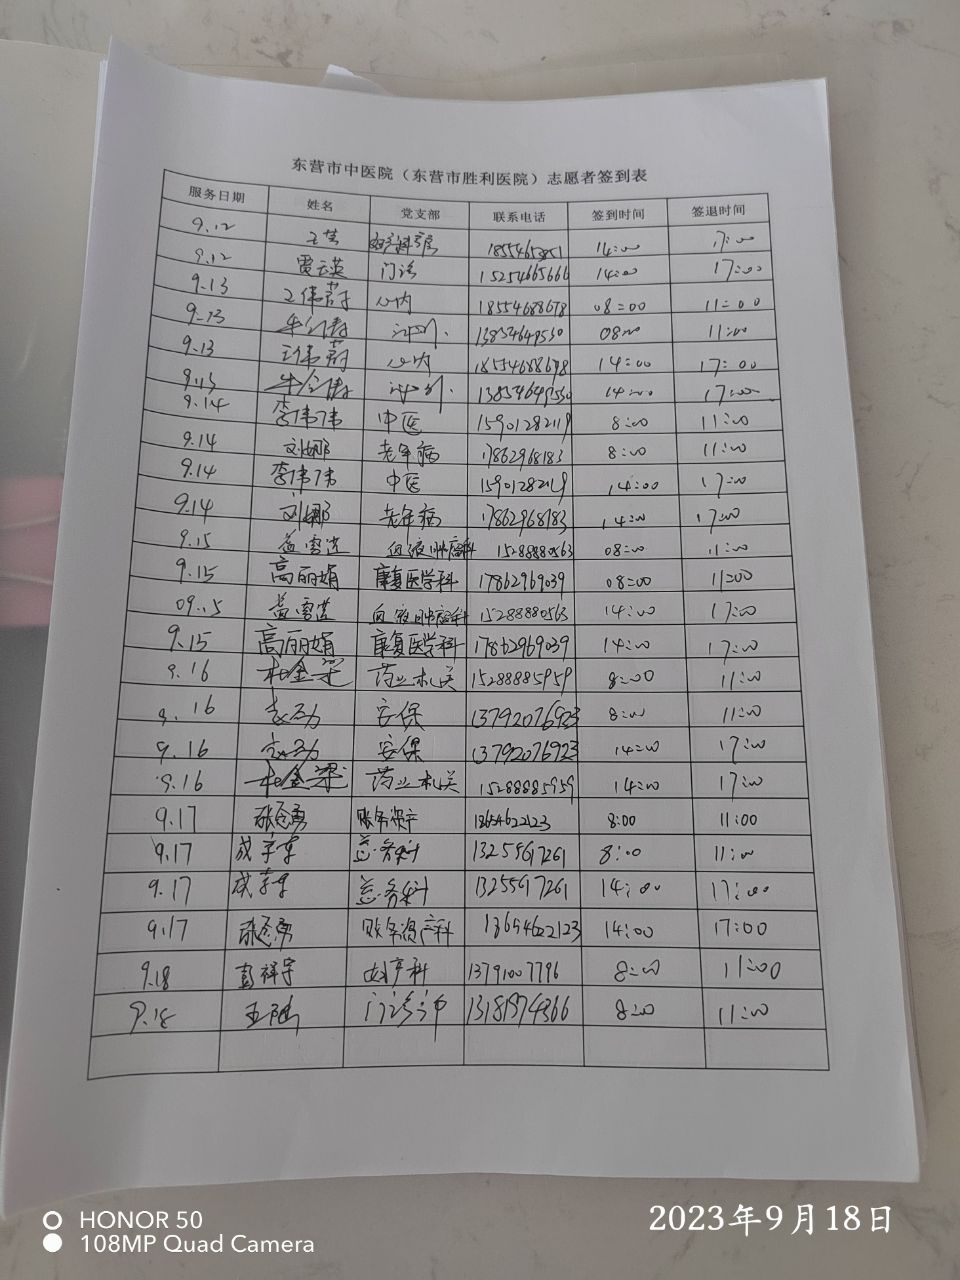 东营市中医院（东营市胜利医院）志愿者签到表
服务日期 姓名 党支部 联系电话 签到时间 签退时间
9.12 14:00 17:00
9.12 贾云英 门诊 15254665666 14:00 17:00
9.13 心内 18554688678 08:00 11:00
9.13 08:00 11:00
9.13 心内 14:00 17:00
9.13 14:00 17:00
9.14 李伟伟 中医 15901282119 8:00 11:00
9.14 刘娜 老年病 17862968183 8:00 11:00
9.14 李伟伟 中医 15901282119 14:00 17:00
9.14 刘娜 老年病 17862968183 14:00 17:00
9.15 血液肿瘤科 15288880563 08:00 11:00
9.15 高丽娟 康复医学科 17862969039 08:00 11:00
09.15 血液肿瘤科 15288880563 14:00 17:00
9.15 高丽娟 康复医学科 17862969039 14:00 17:00
9.16 杜金梁 药业机关 15288885959 8:00 11:00
9.16 安保 13792076923 8:00 11:00
9.16 安保 13792076923 14:00 17:00
9.16 杜金梁 药业机关 15288885959 14:00 17:00
9.17 18654622123 8:00 11:00
9.17 总务科 13255617261 8:00 11:00
9.17 总务科 13255617261 14:00 17:00
9.17 14:00 17:00
9.18 彭祥宇 妇产科 13791007796 8:00 11:00
9.18 8:00 11:00
HONOR 50
108MP Quad Camera
2023年9月18日